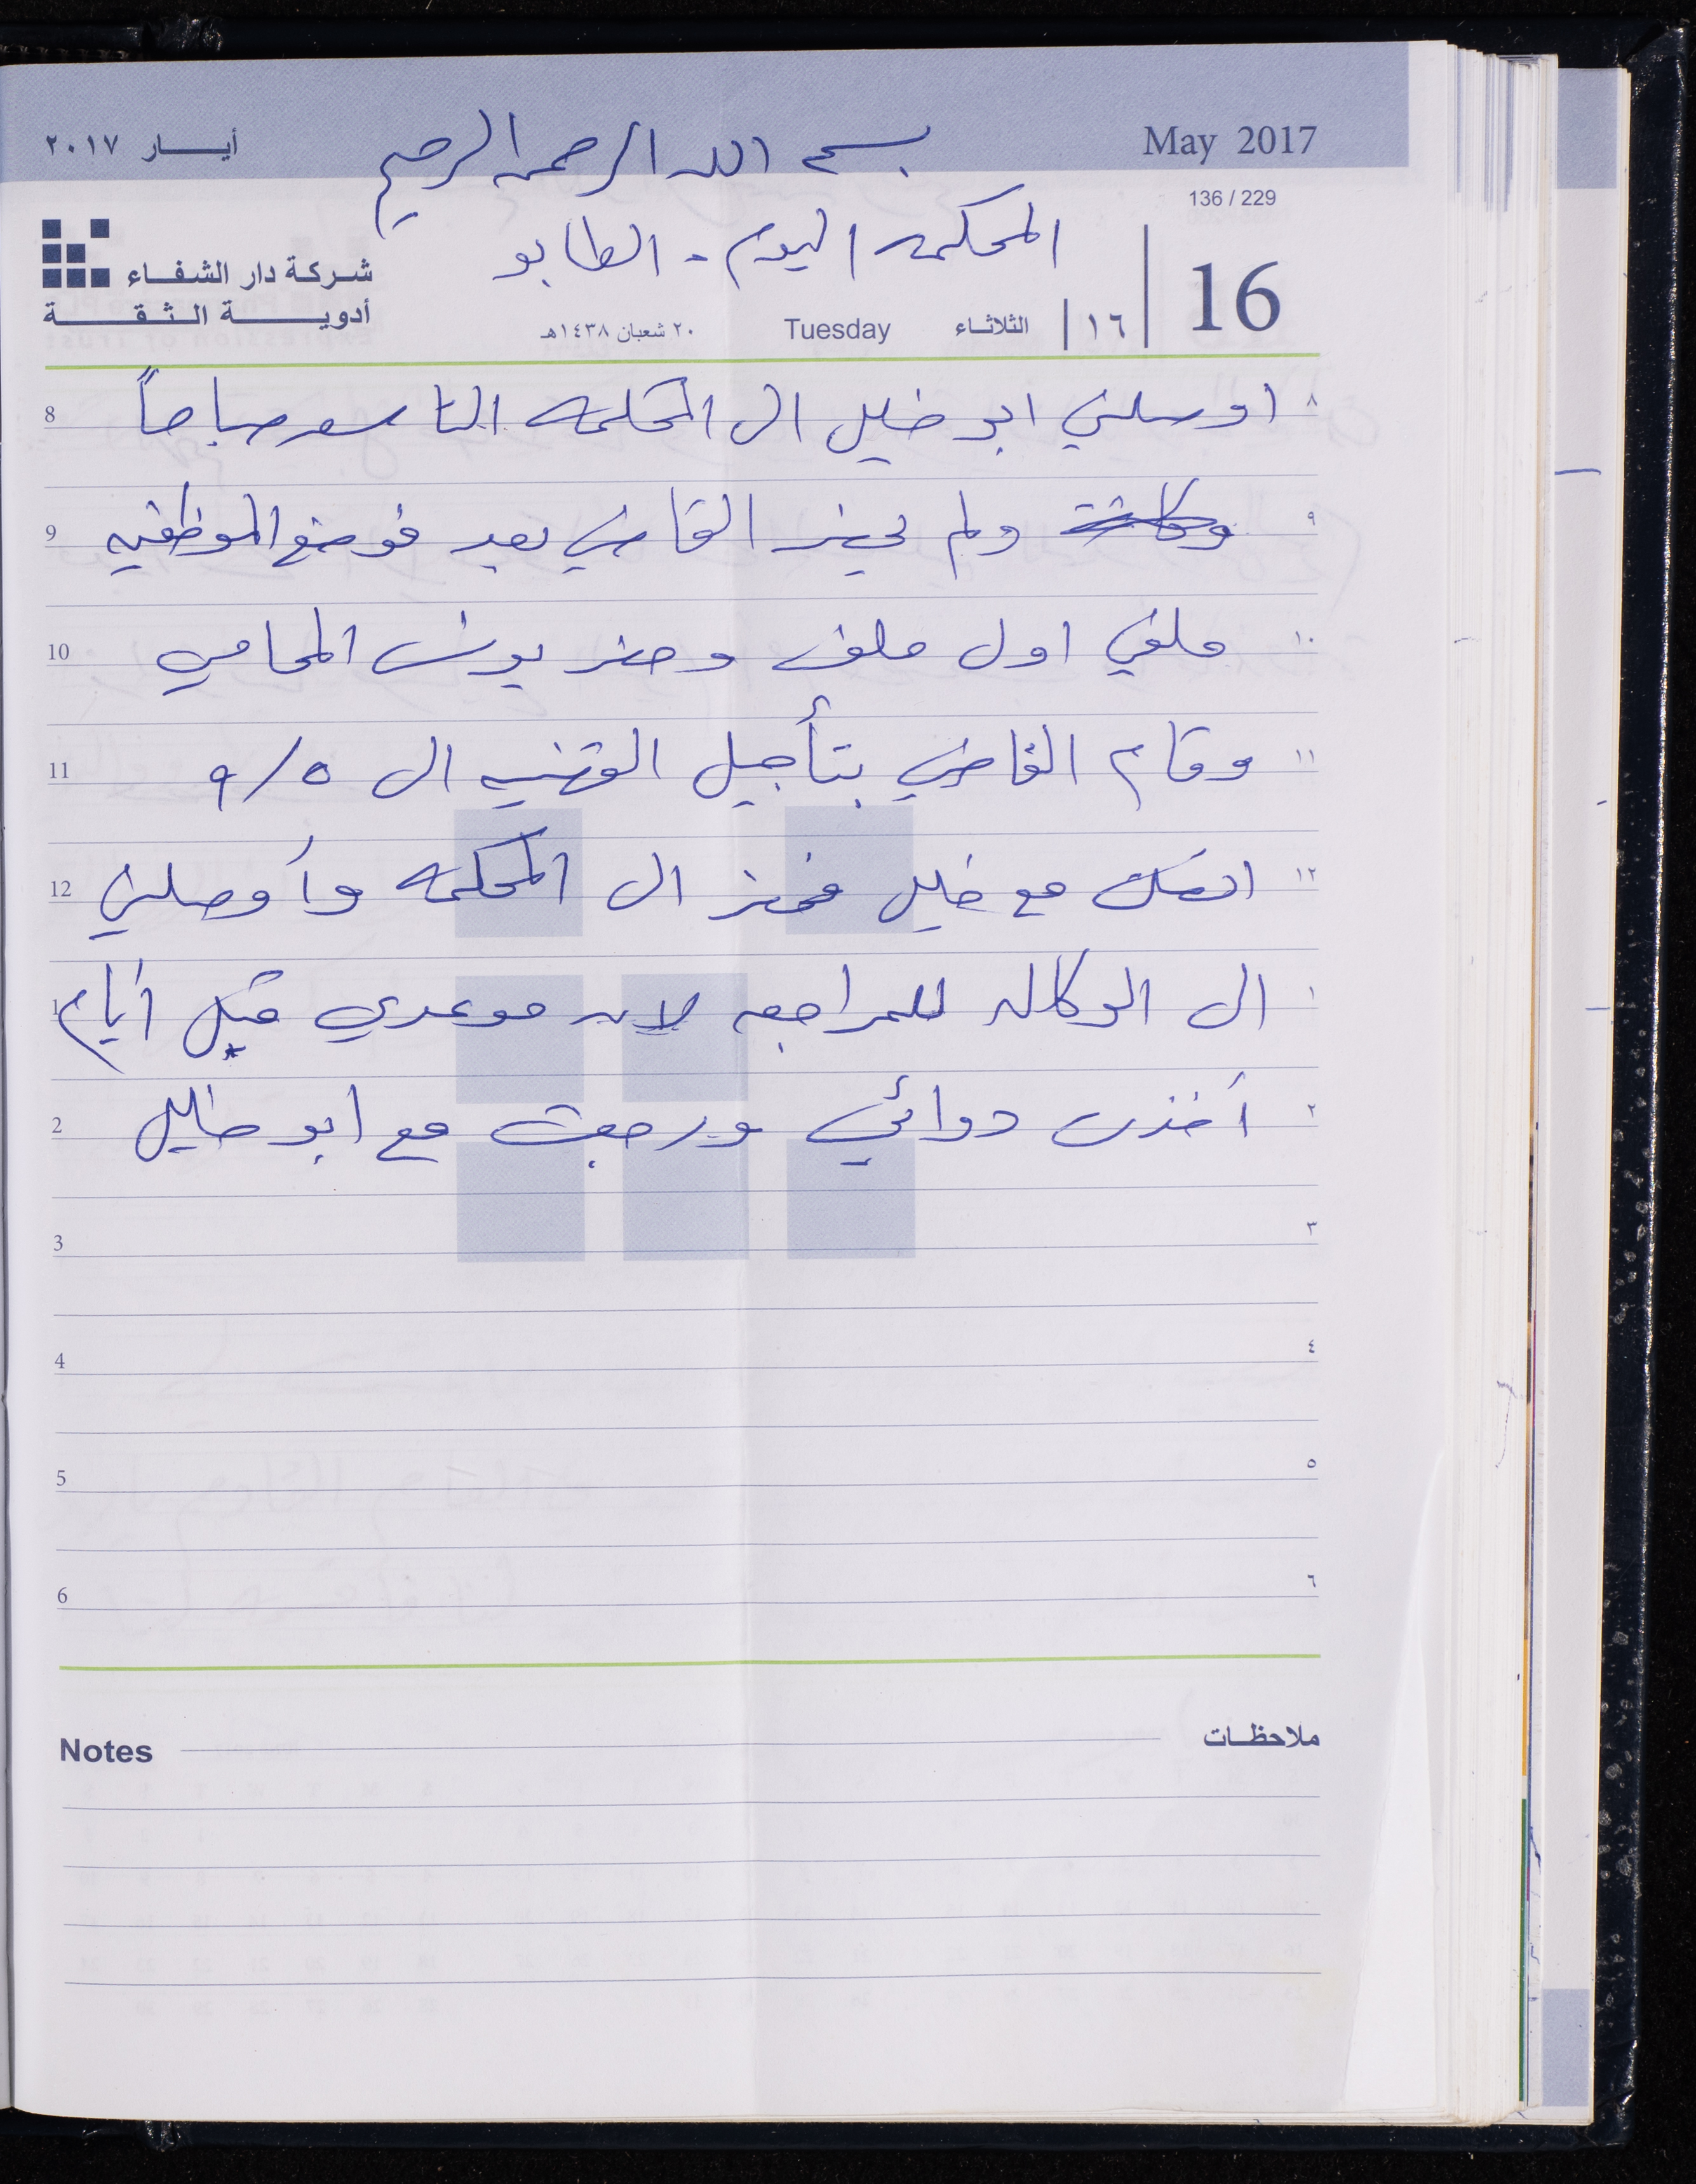 أيـــار ٢٠١٧
May 2017
بسم الله الرحمن الرحيم
136 / 229
المحكمه اليوم - الطابو
شركة دار الشفاء
أدويـــة الثـقـــة
16
١٦
الثلاثاء
Tuesday
٢٠ شعبان ١٤٣٨هـ
٨ اوصلني ابو خليل الى المحكمه التاسعه صباحاً 8
٩ وكانت ولم يحضر القاضي بعد فوضع الموظفيه 9
١٠ ملفي اول ملف وحضر يونس المحامي 10
١١ وقام القاضي بتأجيل القضيه الى ٩/٥ 11
١٢ اتصلت مع خليل فحضر الى المحكمه وأوصلني 12
١ الى الوكاله للمراجعه لان موعدي قبل أيام 1
٢ أخذت دوائي ورجعت مع ابو خليل 2
٣ 3
٤ 4
٥ 5
٦ 6
Notes ملاحظات